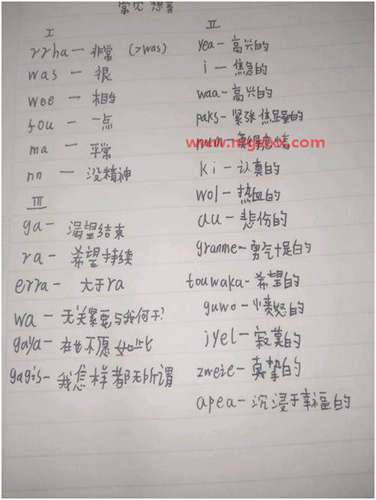 常见想音
I
rrha — 非常 (>was)
was — 很
wee — 相当
fou — 一点
ma — 平常
nn — 没精神
III
ga — 渴望结束
ra — 希望持续
erra — 大于ra
wa — 无关紧要与我何干?
gaya — 在也不愿如此
gagis — 我怎样都无所谓
II
yea — 高兴的
i — 焦急的
waa — 高兴的
paks — 紧张焦虑的
num — 无明感情
www.mgsox.com
ki — 认真的
wol — 热血的
au — 悲伤的
granme — 勇气十足的
touwaka — 希望的
guwo — 愤怒的
iyel — 寂寞的
zweie — 真挚的
apea — 沉浸于幸福的